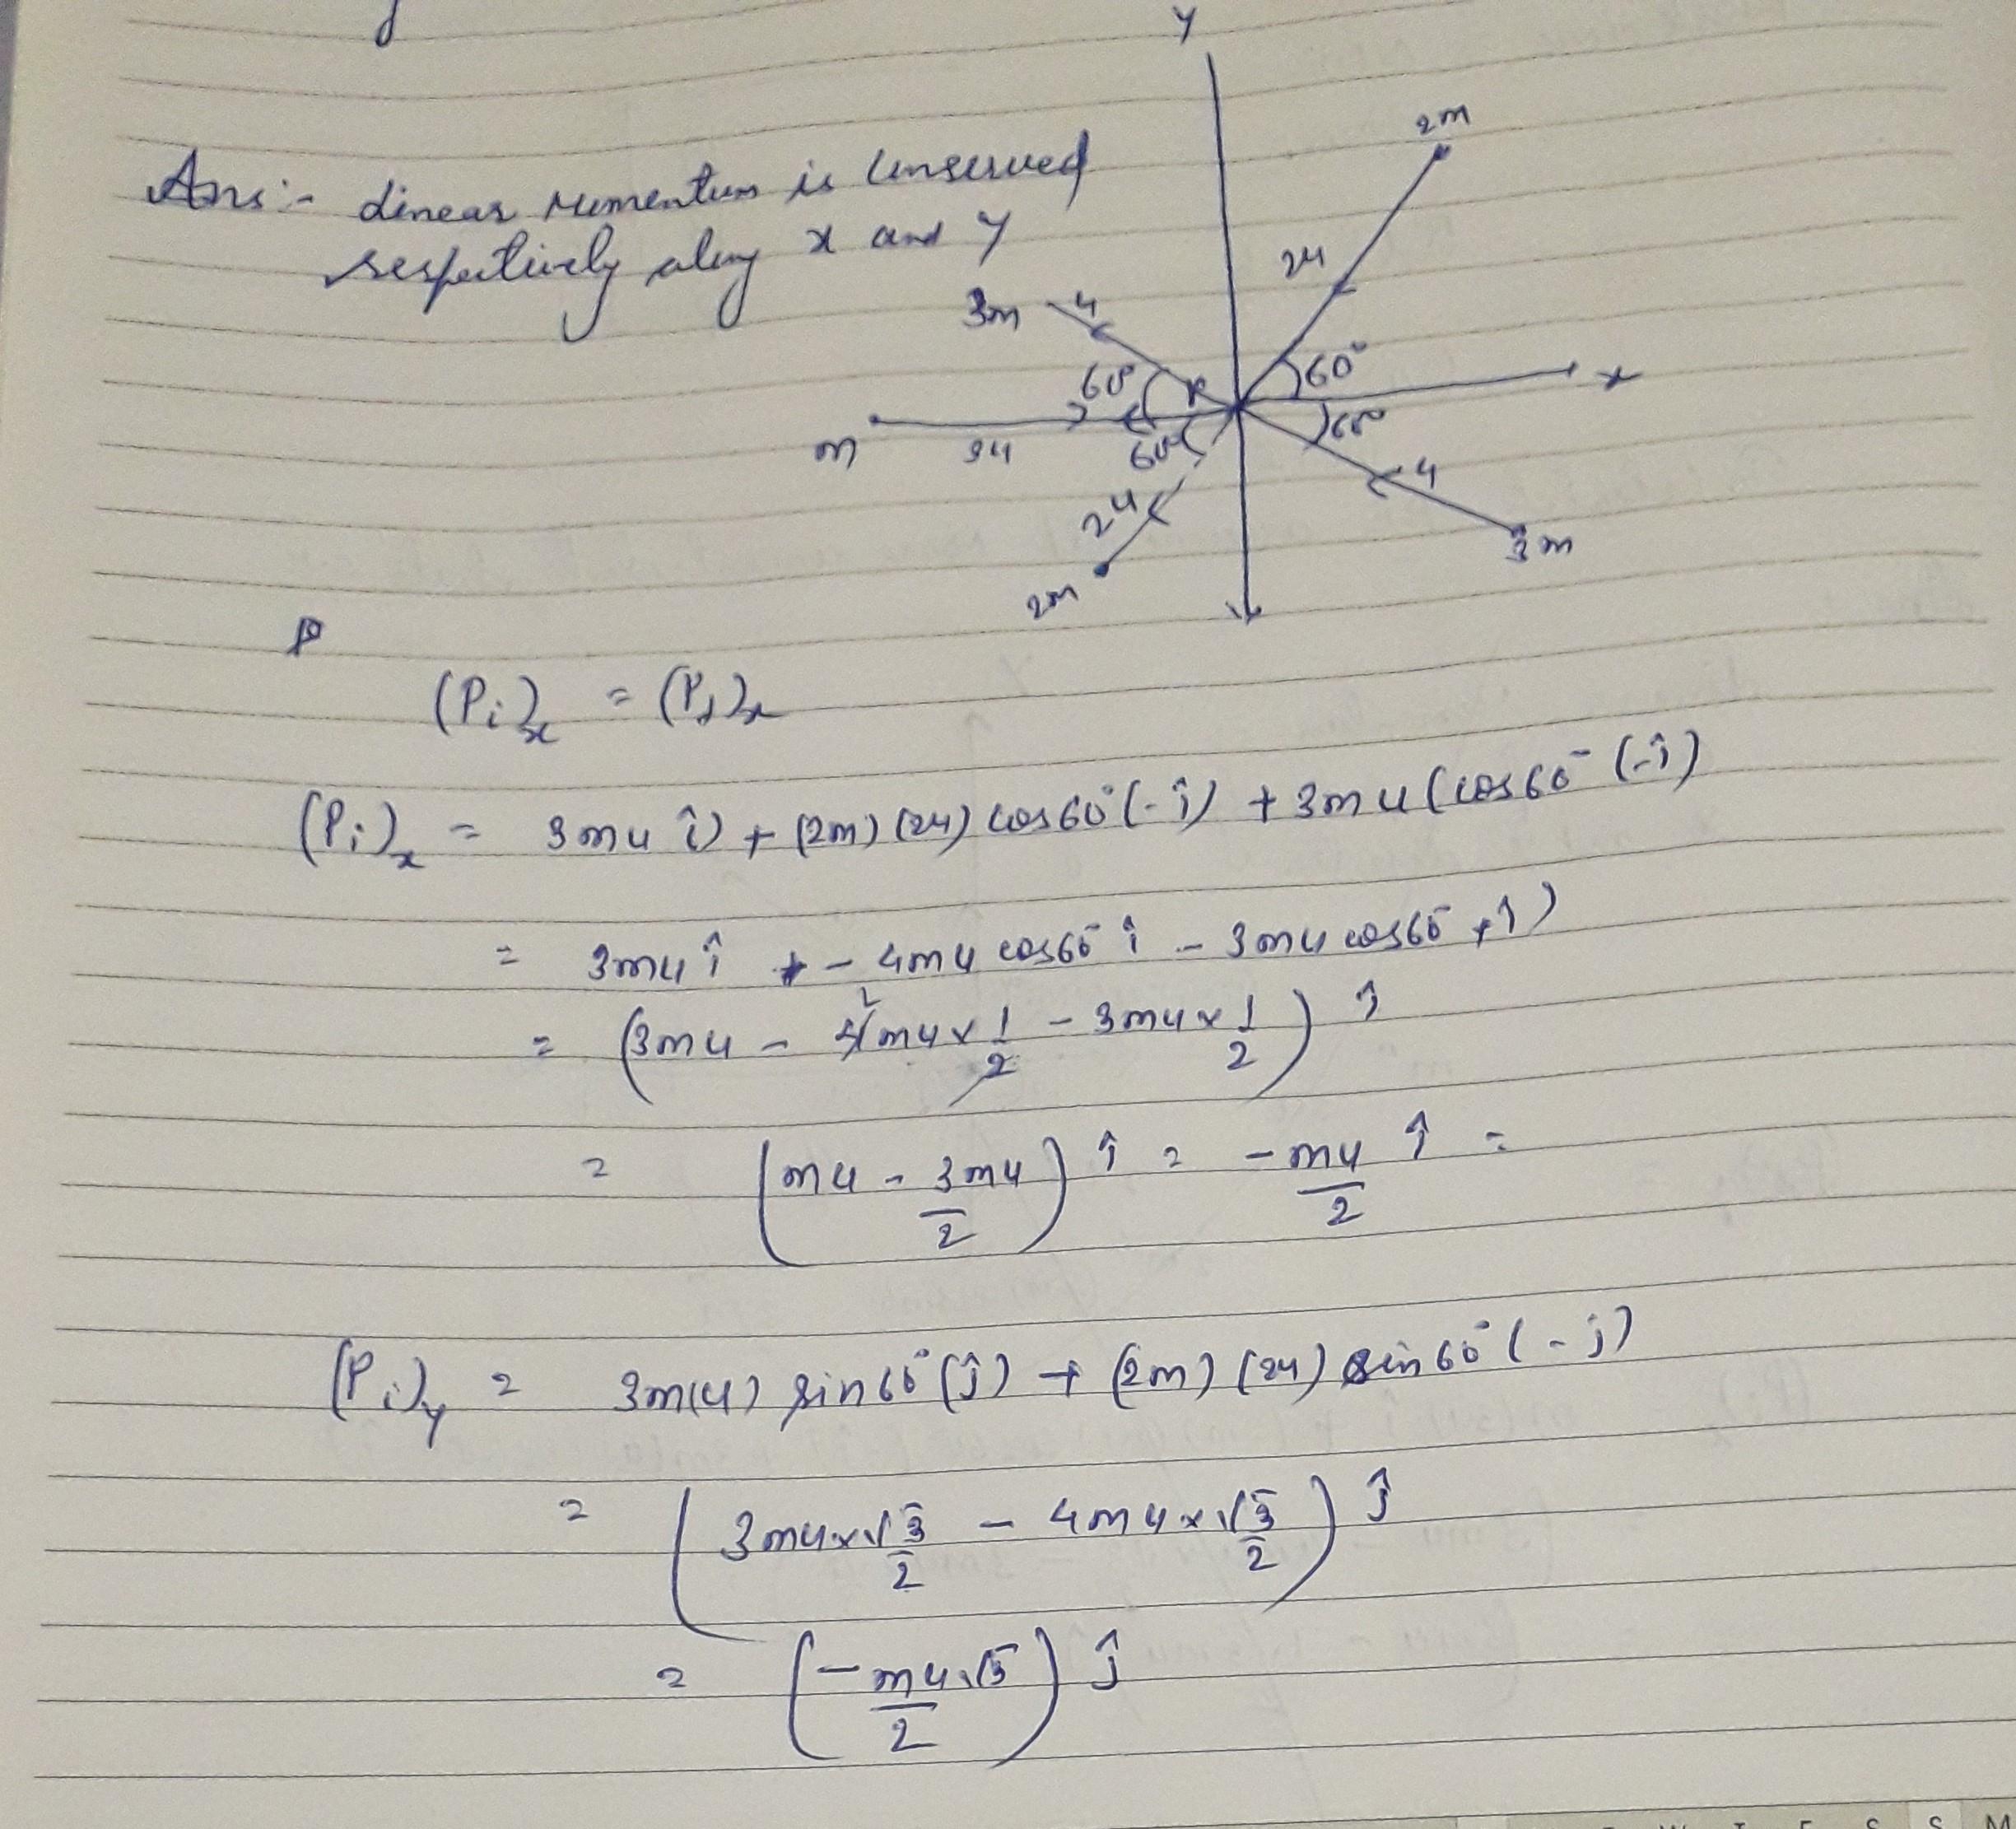 Y
2m
Ans:- Linear momentum is conserved
respectively along x and y
2u
3m u
60° 60° x
m 3u 60° 60° u
2u
2m 3m
(Pi)x = (Pf)x
(Pi)x = 3mu î) + (2m) (2u) cos60° (-î) + 3mu (cos60° (-î)
= 3mu î + - 4mu cos60° î - 3mu cos60° + î)
= (3mu - 4mu × 1/2 - 3mu × 1/2) î
2
= (mu - 3mu/2) î = -mu/2 î =
(Pi)y = 3m(u) sin60° (ĵ) + (2m) (2u) sin60° (-ĵ)
= (3mu×√3/2 - 4mu×√3/2) ĵ
= (-mu√3/2) ĵ